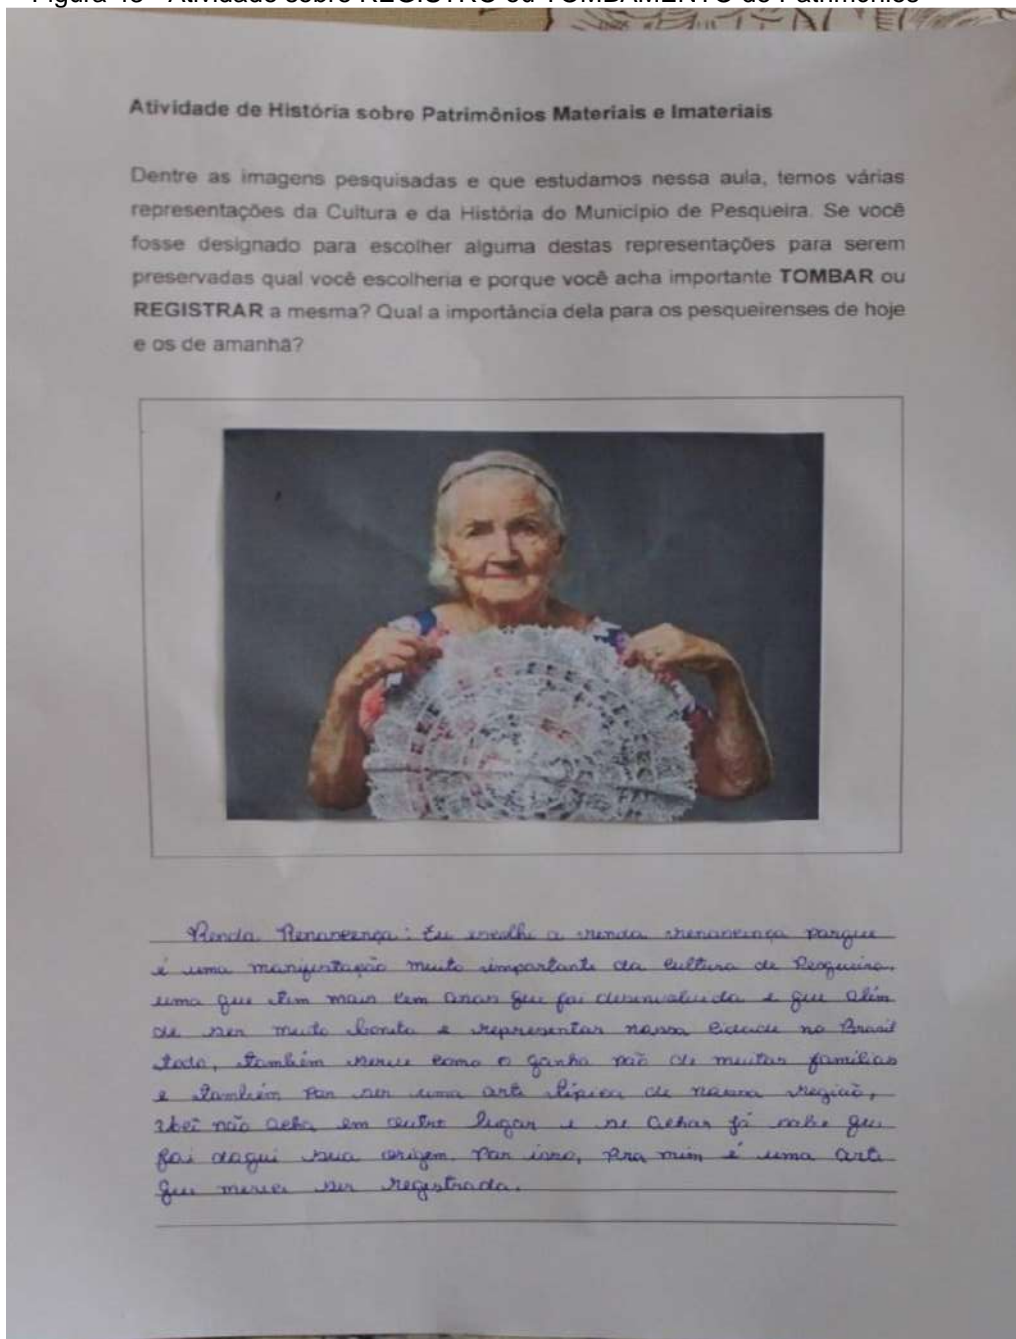 Atividade de História sobre Patrimônios Materiais e Imateriais
Dentre as imagens pesquisadas e que estudamos nessa aula, temos várias
representações da Cultura e da História do Município de Pesqueira. Se você
fosse designado para escolher alguma destas representações para serem
preservadas qual você escolheria e porque você acha importante TOMBAR ou
REGISTRAR a mesma? Qual a importância dela para os pesqueirenses de hoje
e os de amanhã?
Renda Renascença: Eu escolhi a renda renascença porque
é uma manifestação muito importante da cultura de Pesqueira,
uma que tem mais cem anos que foi desenvolvida e que além
de ser muito bonita e representar nossa cidade no Brasil
todo, também serve como o ganha pão de muitas famílias
e também por ser uma arte típica de nossa região,
não acha em outro lugar e se achar já sabe que
foi daqui sua origem. Por isso, pra mim é uma arte
que merece ser registrada.